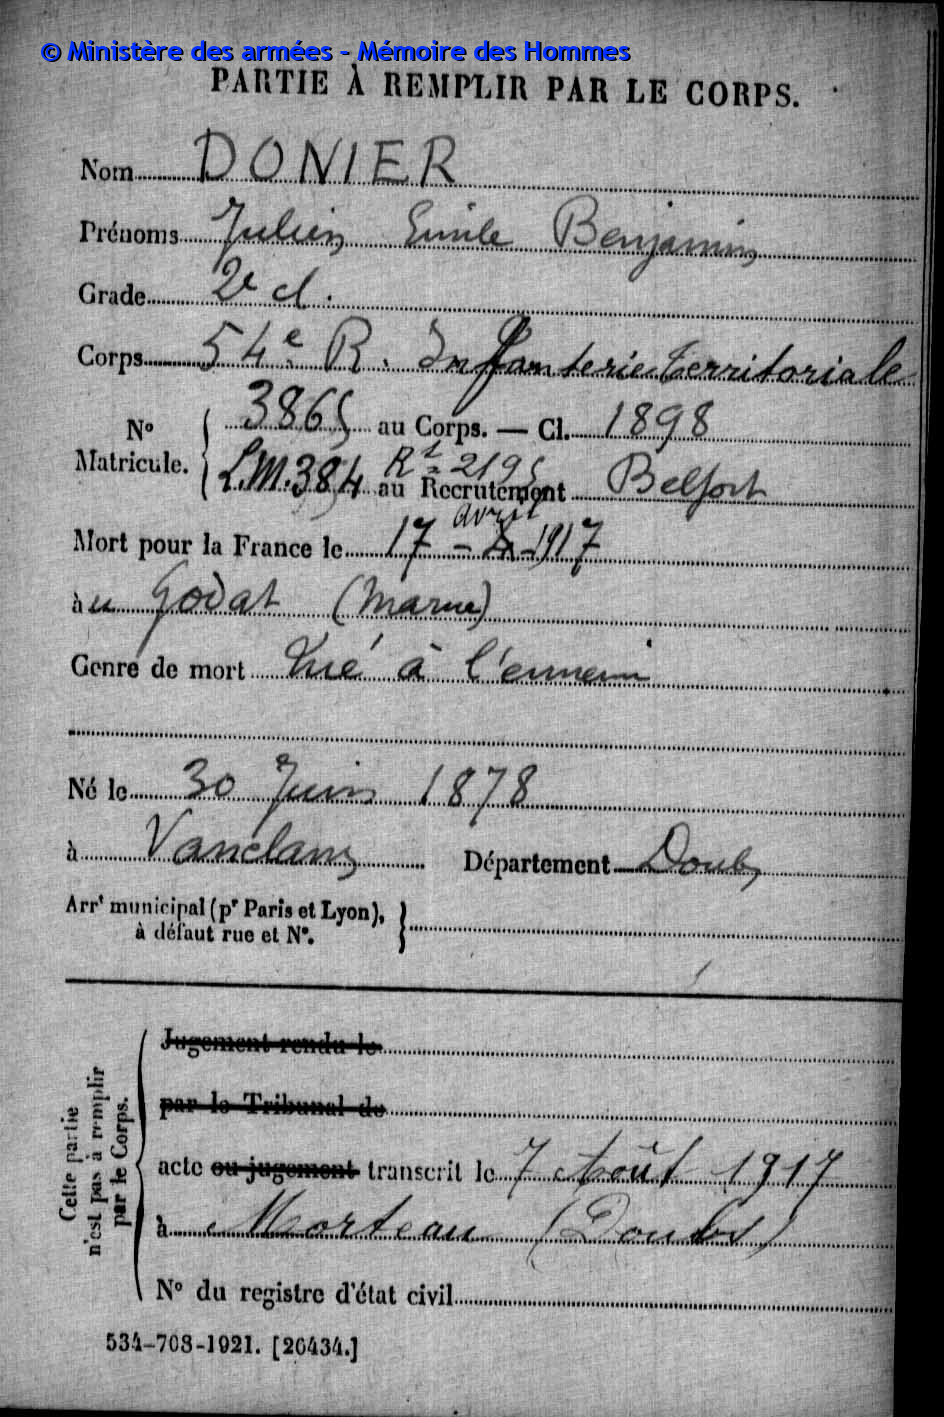 © Ministère des armées - Mémoire des Hommes
PARTIE À REMPLIR PAR LE CORPS.
Nom DONIER
Prénoms Julien Emile Benjamin
Grade 2e cl.
Corps 54e R. Infanterie territoriale
No Matricule. { 3865 au Corps. — Cl. 1898
L.M. 384 Rt = 2195 au Recrutement Belfort
avril
Mort pour la France le 17 - X - 1917
à u Godat (Marne)
Genre de mort tué à l'ennemi
Né le 30 Juin 1878
à Vanclans Département Doubs
Arrt municipal (pr Paris et Lyon), }
à défaut rue et No.
Cette partie n'est pas à remplir par le Corps.
Jugement rendu le
par le Tribunal de
acte ou jugement transcrit le 7 Août 1917
à Morteau (Doubs)
No du registre d'état civil
534-708-1921. [26434.]